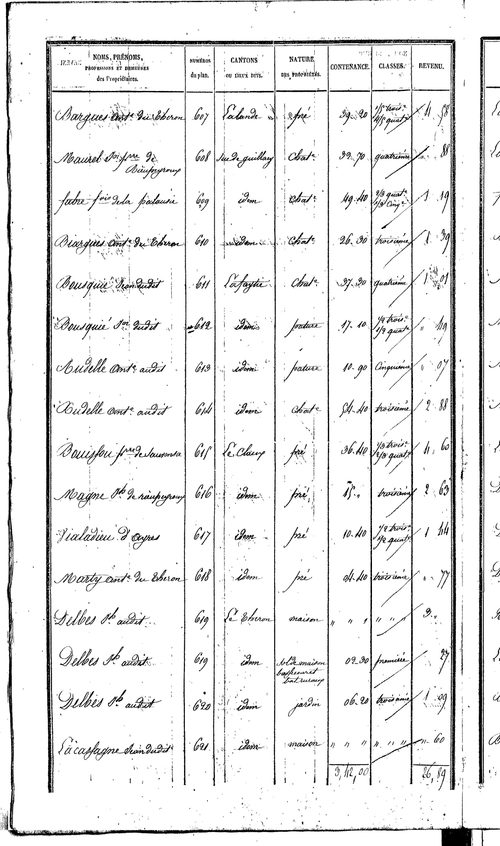 NOMS, PRÉNOMS, PROFESSIONS ET DEMEURES des Propriétaires. NUMÉROS du plan. CANTONS OU LIEUX DITS. NATURE DES PROPRIÉTÉS. CONTENANCE. CLASSES. REVENU.
Bargues antne du Theron 607 Lalande pré 39.20 1/5 trois. 4/5 quat. 4 58
Maurel Jn pre de Rieupeyroux 608 chate 33.70 quatrième " 88
fabre fois de la palousie 609 idem chate 49.40 2/3 quat. 1/3 cinq. 1 19
Bargues antne du Theron 610 idem chate 26.30 troisième 1 39
Bousquié Jean dudit 611 Lafaytre chate 37.30 quatrième 1 01
Bousquié Jn dudit 612 idem pature 17.10 1/2 trois. 1/2 quat. " 49
Audelle ante audit 613 idem pature 10.90 Cinquième " 07
Audelle ante audit 614 idem chate 54.40 troisième 2 88
Bouissou pre de 615 Le Claux pré 36.40 1/3 trois. 2/3 quat. 4 60
Magne Jh de rieupeyroux 616 idem pré 15 " troisième 2 63
Vialadieu d'ayres 617 idem pré 10.40 1/2 trois. 1/2 quat. 1 44
Marty ante du Theron 618 idem pré 04.40 troisième " 77
Delbes Jh audit 619 Le Theron maison " " " " " " 3 "
Delbes Jh audit 619 idem sol de maison 02.30 première " 27
Delbes Jh audit 620 idem jardin 06.20 troisième 1 09
Lacassagne Jean dudit 621 idem maison " " " " " " " 60
3,42,00 26,89